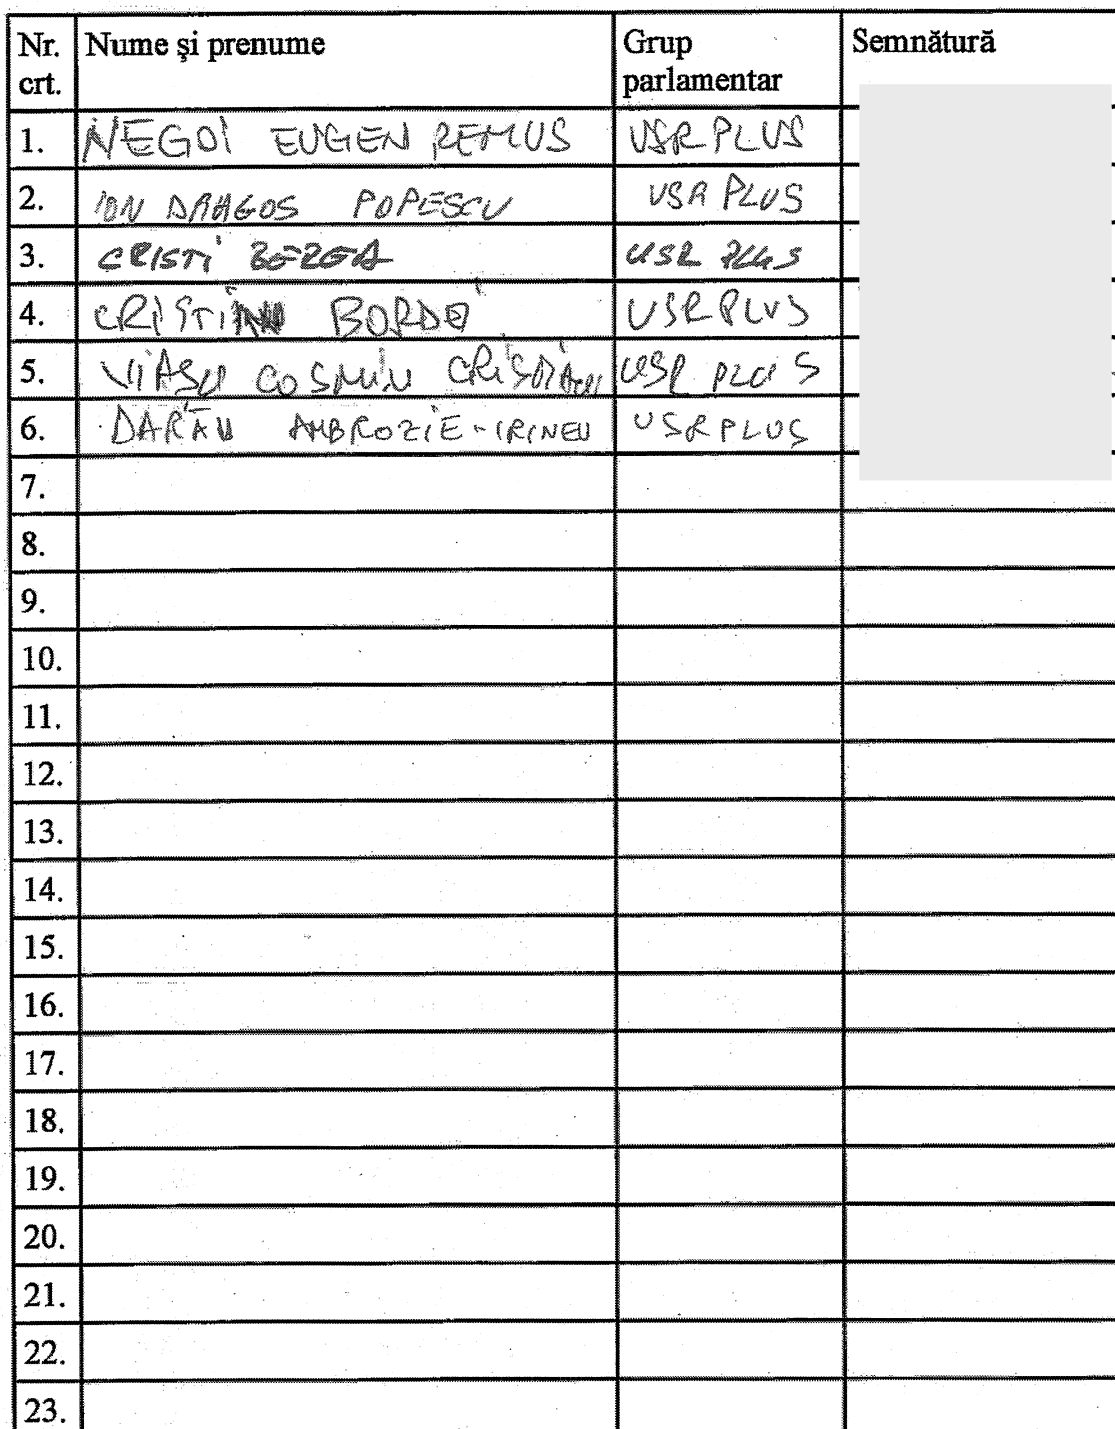 Nr. crt. Nume și prenume Grup parlamentar Semnătură
1. NEGOI EUGEN REMUS USR PLUS
2. ION DRAGOS POPESCU USR PLUS
3. CRISTI BEREA USR PLUS
4. BORDO USR PLUS
5. COSMIN USR PLUS
6. DARĂU AMBROZIE-IRINEU USR PLUS
7.
8.
9.
10.
11.
12.
13.
14.
15.
16.
17.
18.
19.
20.
21.
22.
23.